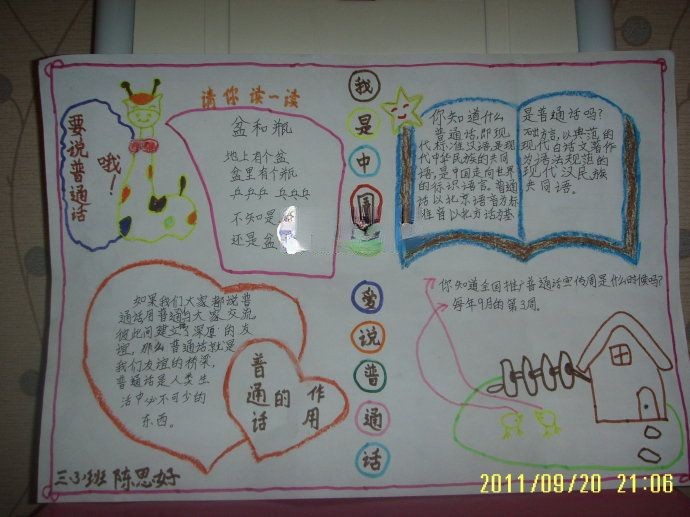 要说普通话
哦！
请你读一读
盆和瓶
地上有个盆
盆里有个瓶
乒乒乒 乒乒乒
不知是
还是盆
我是中国
爱说普通话
你知道什么
普通话，即现
代标准汉语，是现
代中华民族的共同
语，是中国走向世界
的标识语言。普通
话以北京语音为标
准音以北方话为基
是普通话吗？
础方言，以典范的
现代白话文著作
为语法规范的
现代汉民族
共同语。
如果我们大家都说普
通话用普通的大家交流，
彼此间建立深厚的友
谊，那么普通话就是
我们友谊的桥梁，
普通话是人类生
活中必不可少的
东西。
普通话的作用
你知道全国推广普通话宣传周是什么时候吗？
每年9月的第3周。
三、3班 陈思好
2011/09/20 21:06